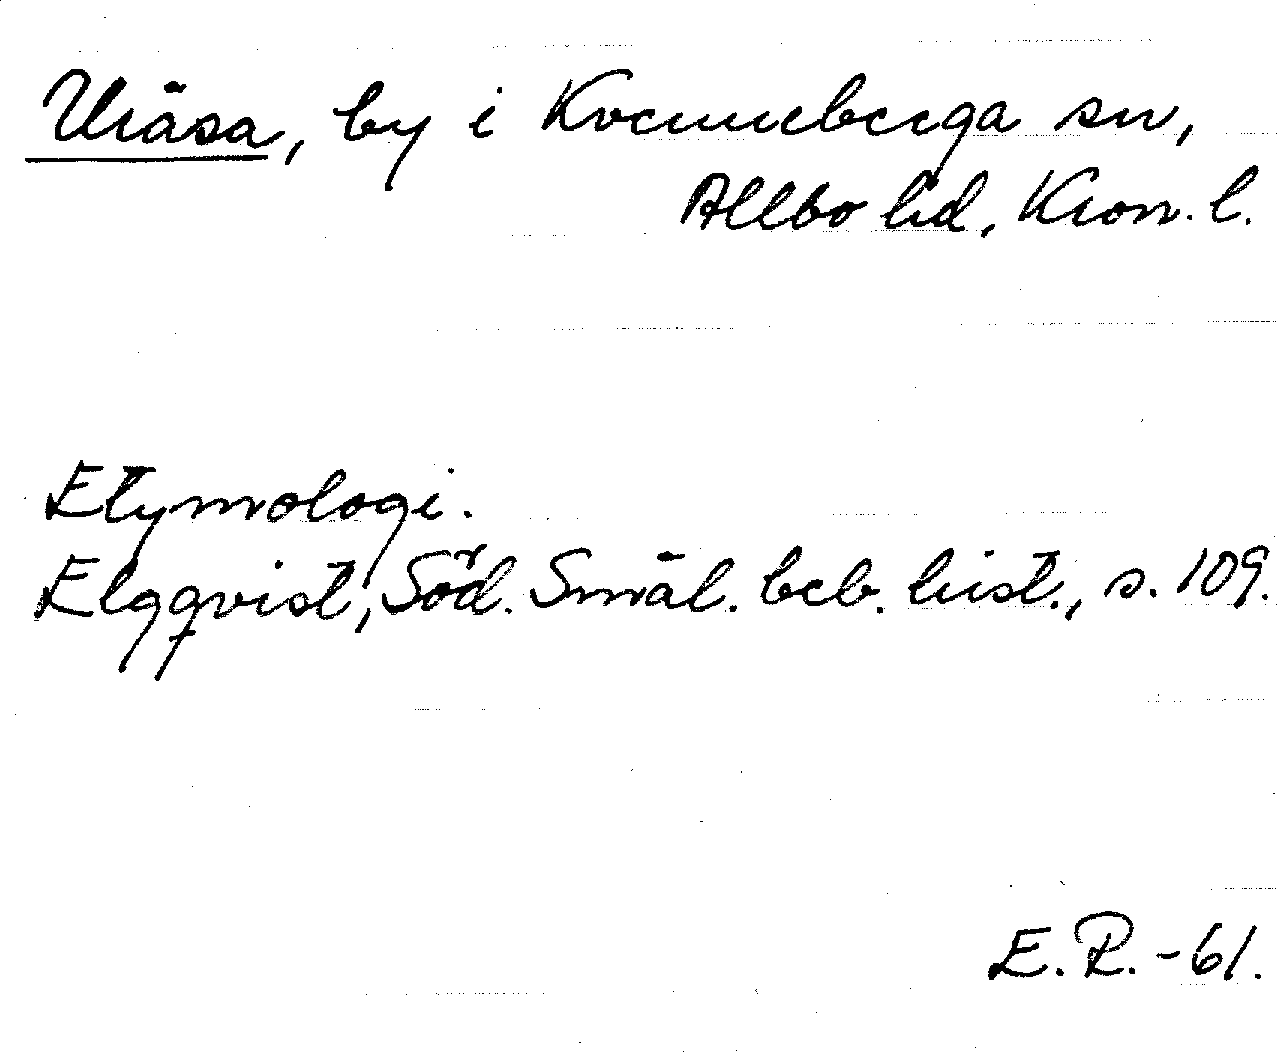 Uråsa, by i Kvenneberga sn,
Allbo hd, Kron. l.
Etymologi.
Elgqvist, Söd. Smål. beb. hist., s. 109.
E. R. -61.